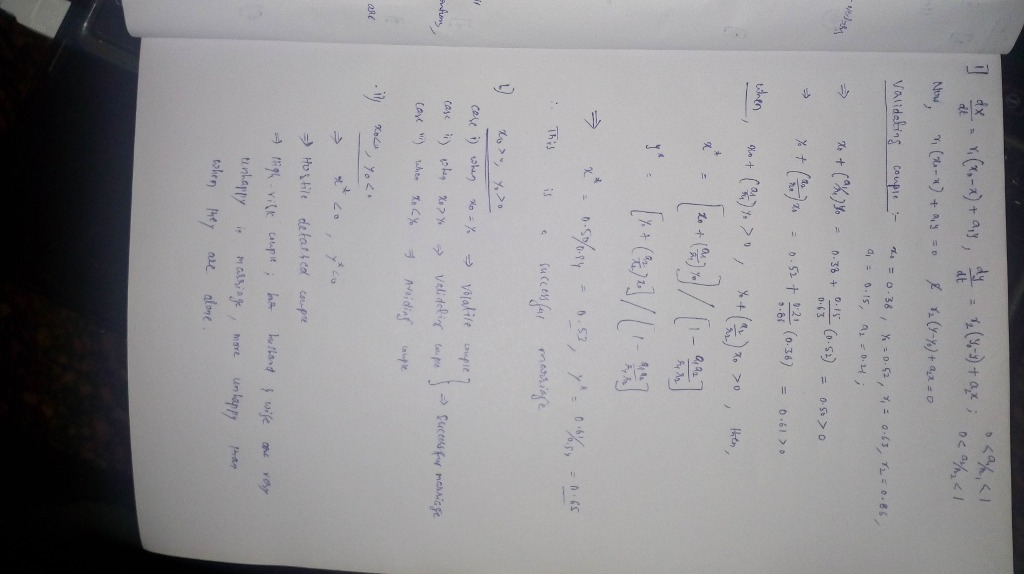 1] dx/dt = r₁(x₀-x) + a₁y, dy/dt = r₂(y₀-y) + a₂x ; 0 < a₁/r₁ < 1
0 < a₂/r₂ < 1
Now, r₁(x₀-x) + a₁y = 0 & r₂(y-y₀) + a₂x = 0
Validating couple :- x₀ = 0.38, y₀ = 0.52, r₁ = 0.63, r₂ = 0.86,
a₁ = 0.15, a₂ = 0.21;
⇒ x₀ + (a₁/r₁)y₀ = 0.38 + 0.15/0.63 (0.52) = 0.50 > 0
⇒ y₀ + (a₂/r₂)x₀ = 0.52 + 0.21/0.86 (0.38) = 0.61 > 0
When, x₀ + (a₁/r₁)y₀ > 0, y₀ + (a₂/r₂)x₀ > 0, then,
x* = [x₀ + (a₁/r₁)y₀] / [1 - a₁a₂/r₁r₂]
y* = [y₀ + (a₂/r₂)x₀] / [1 - a₁a₂/r₁r₂]
⇒ x* = 0.50/0.94 = 0.53, y* = 0.61/0.94 = 0.65
∴ This is a successful marriage
i) x₀>0, y₀>0
case i) when x₀ = y₀ ⇒ volatile couple
case ii) when x₀>y₀ ⇒ validating couple } ⇒ successful marriage
case iii) when x₀<y₀ ⇒ Avoiding couple
ii) x₀<0, y₀<0
⇒ x*<0, y*<0
⇒ Hostile detached couple
⇒ High-risk couple ; both husband & wife are very
unhappy in marriage, more unhappy than
when they are alone.
are